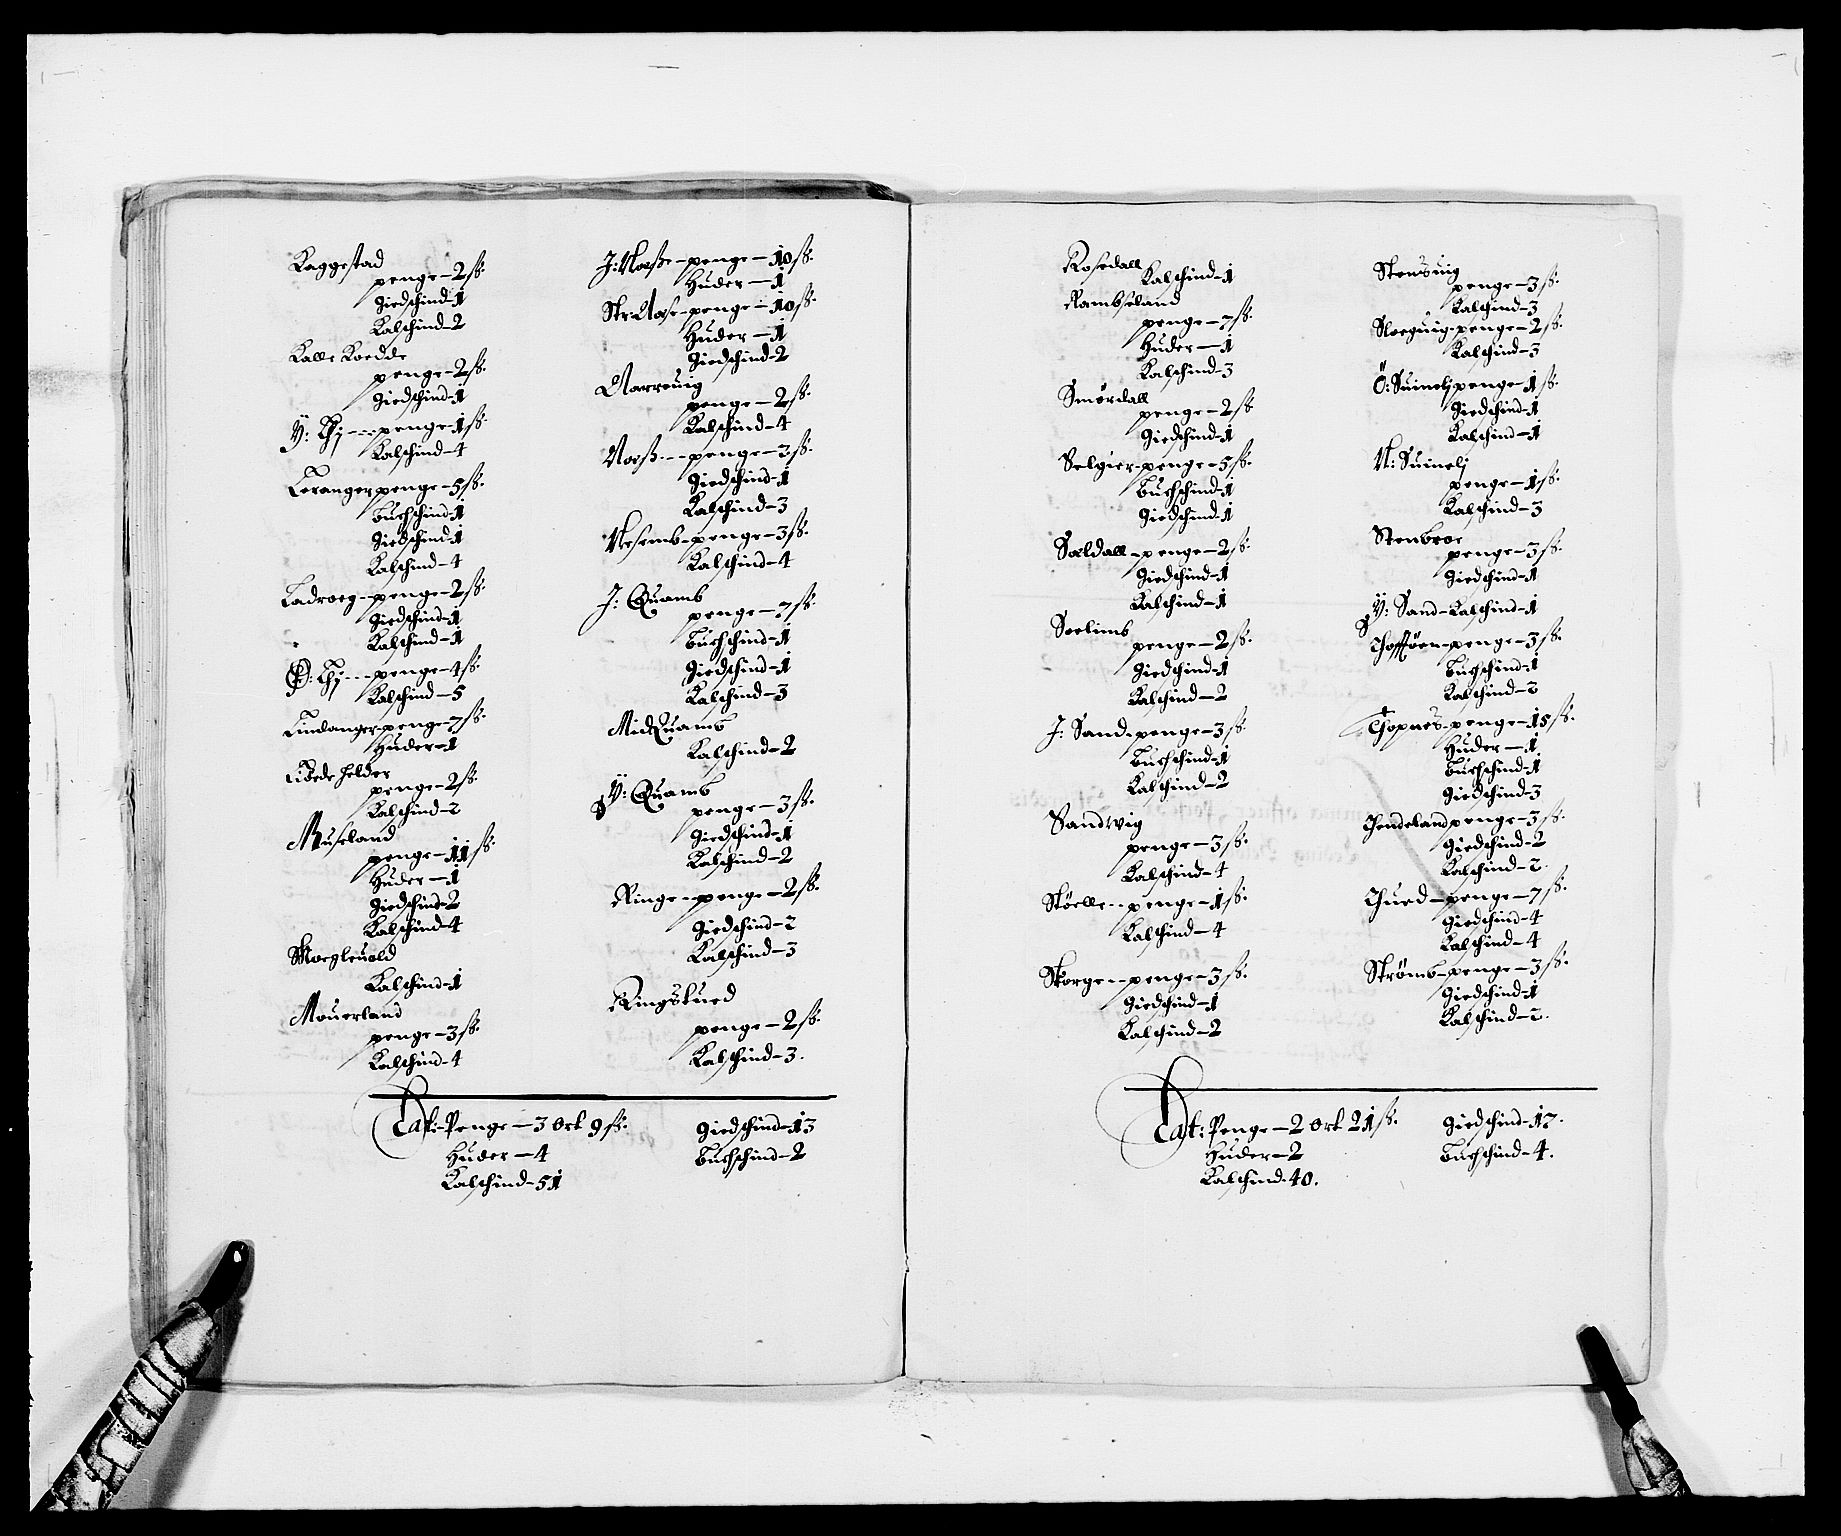 Kaggestad
penge – 2 ß.
Giedschind – 1
Kalschind – 2
Kalle Kodde
penge – 2 ß.
Giedschind – 1
Y: Thj --- penge – 1 ß.
Kalschind – 4
Leranger penge – 5 ß.
Buchschind – 1
Giedschind – 1
Kalschind – 4
Ladroeg – penge – 2 ß.
Giedschind – 1
Kalschind – 1
Ø: Thj --- penge – 4 ß.
Kalschind – 5
Lindanger – penge – 7 ß.
Huder – 1
helder
penge – 2 ß.
Kalschind – 2
Museland
penge – 11 ß.
Huder – 1
Giedschind – 2
Kalschind – 4
Moegleuold
Kalschind – 1
Mouerland
penge – 3 ß.
Kalschind – 4
J: Noeße – penge – 10 ß.
Huder – 1
Str: Noese – penge – 10 ß.
Huder – 1
Giedschind – 2
Narreuig
penge – 2 ß.
Kalschind – 4
Noeß --- penge – 3 ß.
Giedschind – 1
Kalschind – 3
Nesemb – penge – 3 ß.
Kalschind – 4
J: Quamb
penge – 7 ß.
Buchschind – 1
Giedschind – 1
Kalschind – 3
Mid Quamb
Kalschind – 2
Y: Quamb
penge – 3 ß.
Giedschind – 1
Kalschind – 2
Ringe – penge – 2 ß.
Giedschind – 2
Kalschind – 3
Ringstued
penge – 2 ß.
Kalschind – 3.
Lat: Penge – 3 Ort 9 ß.
Huder – 4
Kalschind – 51
Giedschind – 13
Buchschind – 2
Rosedall
Kalschind – 1
Rambseland
penge – 7 ß.
Huder – 1
Kalschind – 3
Smørdall
penge – 2 ß
Giedschind – 1
Selgier – penge – 5 ß.
Buchschind – 1
Giedschind – 1
Sældall – penge – 2 ß.
Giedschind – 1
Kalschind – 1
Seelimb
penge – 2 ß.
Giedschind – 1
Kalschind – 2
J: Sand – penge – 3 ß.
Buchschind – 1
Kalschind – 2
Sandwig
penge – 3 ß.
Kalschind – 4
Støelle -- penge – 1 ß.
Kalschind – 4
Skorge -- penge – 3 ß.
Giedschind – 1
Kalschind – 2
Stensuig
penge – 3 ß.
Kalschind – 3
Sloeguig – penge – 2 ß.
Kalschind – 3
Ö: Suinelj penge – 1 ß.
Giedschind – 1
Kalschind – 1
N: Suinelj
penge – 1 ß.
Kalschind – 3
Stenbroe
penge – 3 ß.
Giedschind – 1
Y: Sand – Kalschind – 1
Thofftøen – penge – 3 ß.
Buchschind – 1
Kalschind – 2
Thopnes – penge – 15 ß.
Huder – 1.
Buchschind – 1
Giedschind – 3
Thendeland penge – 3 ß.
Giedschind – 2
Kalschind – 2.
Thued – penge – 7 ß.
Giedschind – 4
Kalschind – 4
Strømb – penge – 3 ß.
Giedschind – 1
Kalschind – 2.
Lat: Penge – 2 Ort 21 ß.
Huder – 2
Kalschind 40.
Giedschind – 17.
Buchschind – 4.